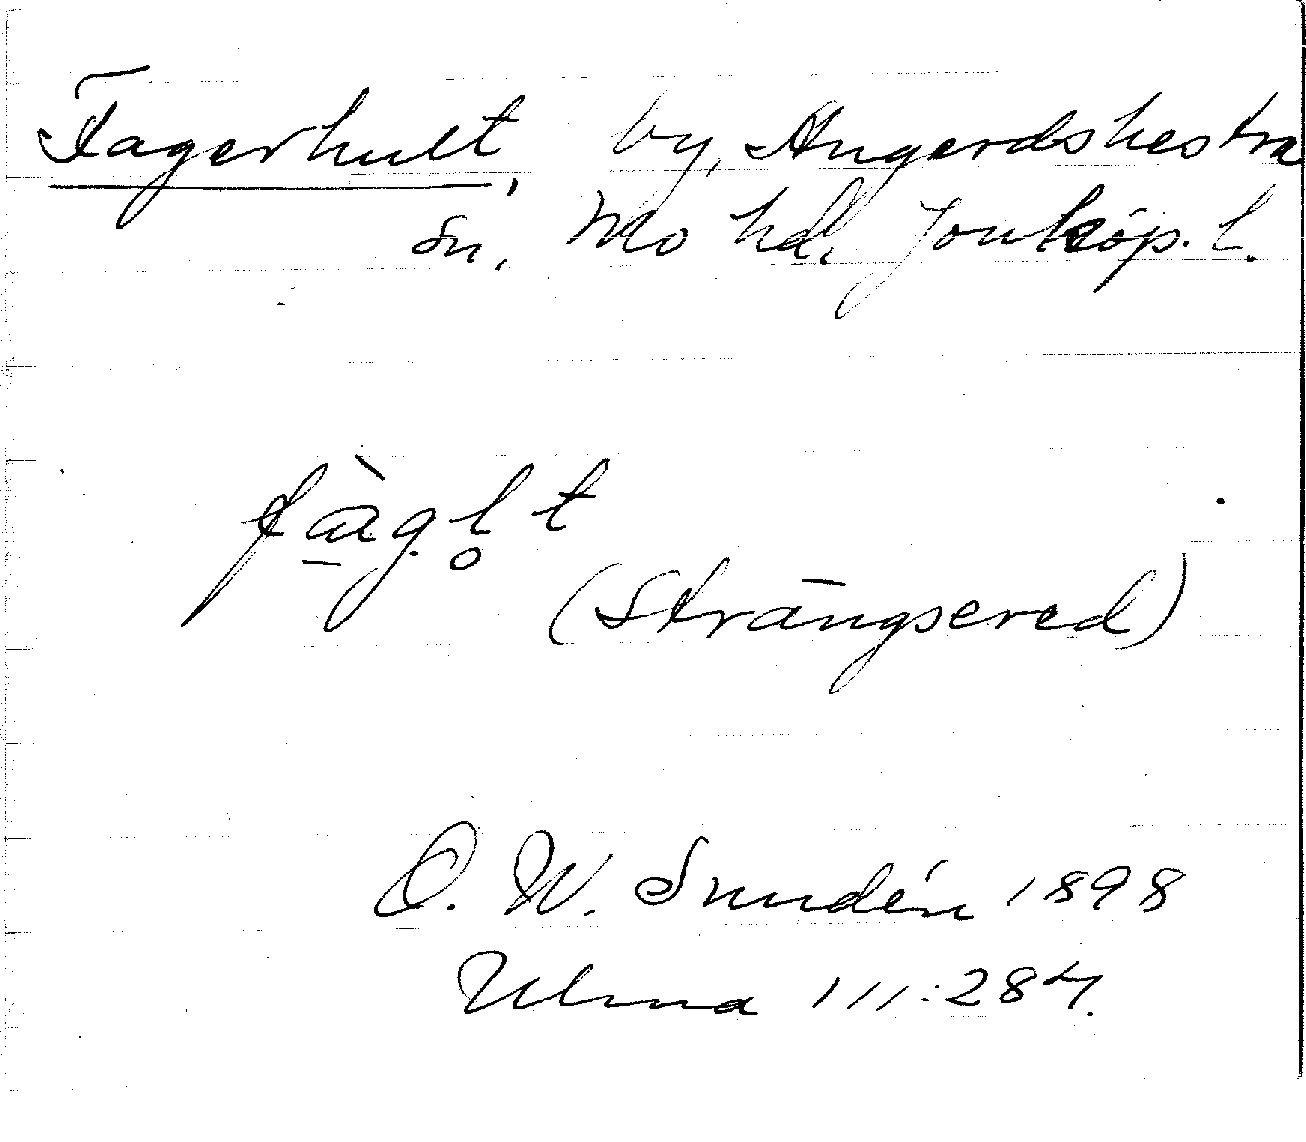 Fagerhult, by, Angerdshestra
sn, Mo hd. Jönköp. l.
fàgl̥t
(Strängsered)
O. W. Sundén 1898
Ulma 111:287.